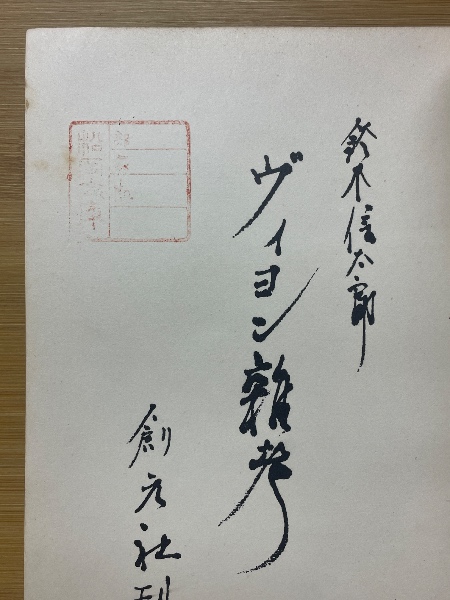 鈴木信太郎
ヴィヨン雑考
創元社刊